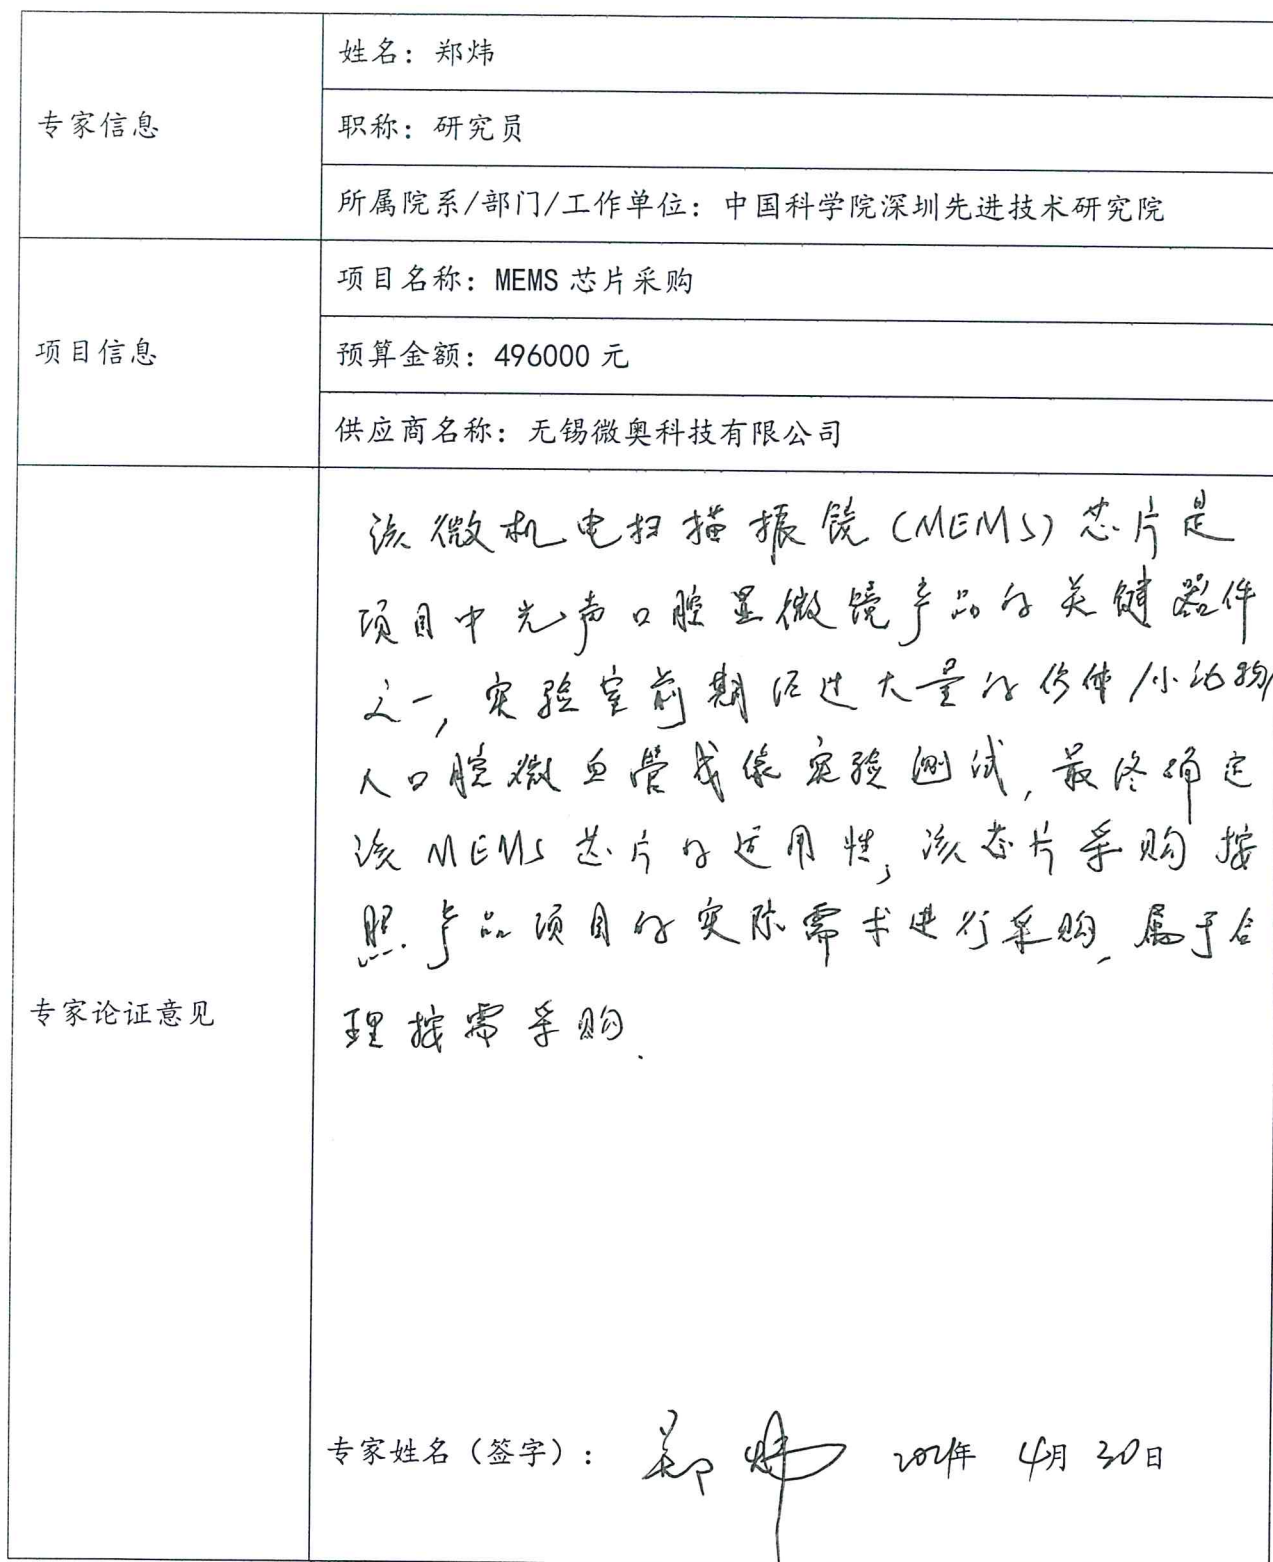 专家信息
姓名：郑炜
职称：研究员
所属院系/部门/工作单位：中国科学院深圳先进技术研究院
项目信息
项目名称：MEMS 芯片采购
预算金额：496000 元
供应商名称：无锡微奥科技有限公司
专家论证意见
该微机电扫描振镜(MEMS)芯片是
项目中光声口腔显微镜产品的关键器件
之一，实验室前期经过大量的仿体/小动物/
人口腔微血管成像实验测试，最终确定
该MEMS芯片的适用性，该芯片采购按
照产品项目的实际需求进行采购，属于合
理按需采购.
专家姓名（签字）：郑炜 年 4月30日